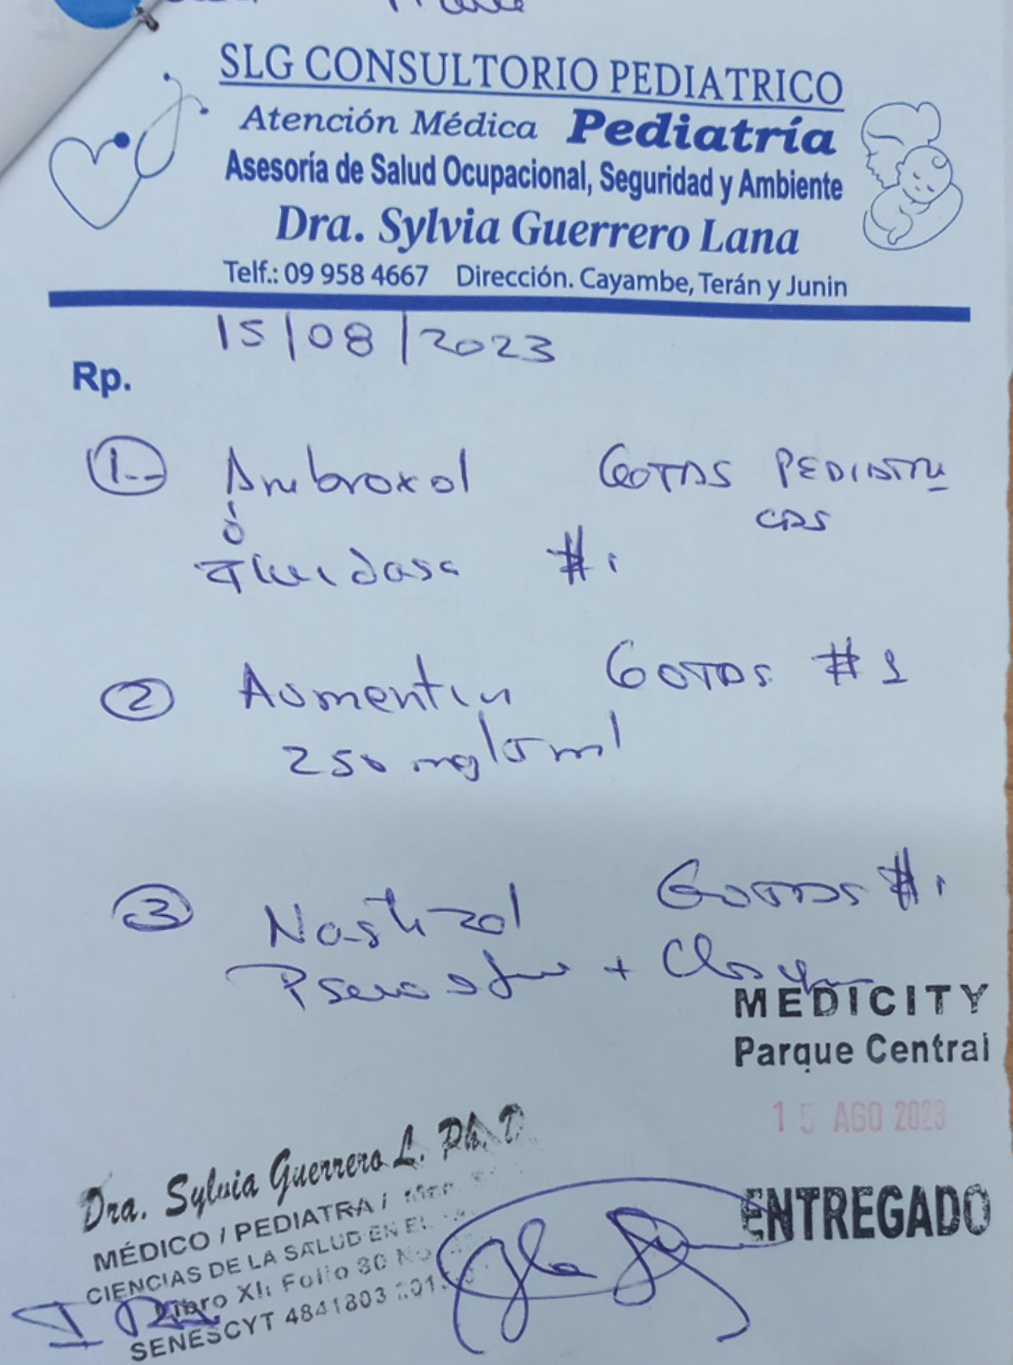 SLG CONSULTORIO PEDIATRICO
Atención Médica Pediatría
Asesoría de Salud Ocupacional, Seguridad y Ambiente
Dra. Sylvia Guerrero Lana
Telf.: 09 958 4667 Dirección. Cayambe, Terán y Junin
15/08/2023
Rp.
1.- Ambroxol GOTAS PEDIATRI
CAS
ó
Fluidasa #1
2 Aumentin GOTAS #1
250 mg/5ml
3 Nastizol GOTAS #1
+
MEDICITY
Parque Central
15 AGO 2023
ENTREGADO
Dra. Sylvia Guerrero L. Ph. D
MÉDICO / PEDIATRA /
CIENCIAS DE LA SALUD EN EL
Libro XI: Folio 80 No
SENESCYT 4841803